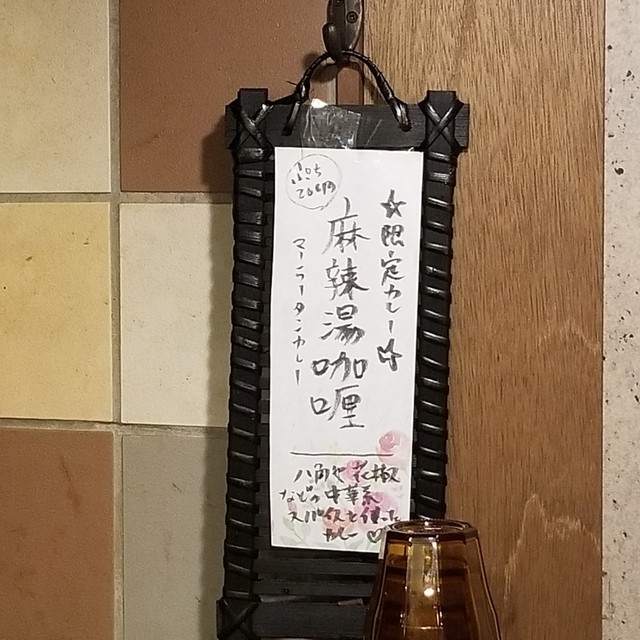 ☆限定カレー☆
麻辣湯咖喱
マーラータンカレー
八角や花椒
などの中華系
スパイスを使った
カレー♡